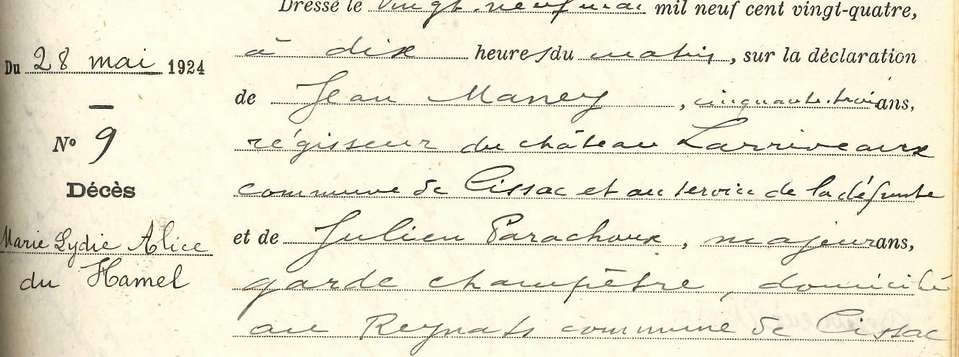 Dressé le vingt-neuf mai mil neuf cent vingt-quatre,
à dix heures du matin, sur la déclaration
de Jean Maney, cinquante-trois ans,
régisseur du château Larriveaux
commune de Cissac et au service de la défunte
et de Julien Parachoux, majeur ans,
garde champêtre, domicilié
au Reynats commune de Cissac
Du 28 mai 1924
—
No 9
Décès
Marie Lydie Alice
du Hamel